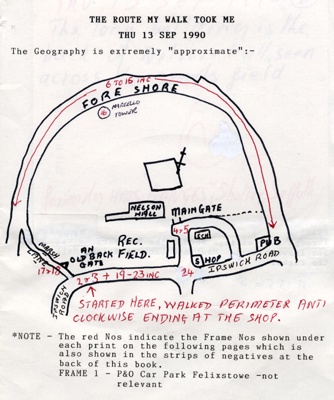 THE ROUTE MY WALK TOOK ME
THU 13 SEP 1990
The Geography is extremely "approximate":-
6 to 15 INC
FORE SHORE
MARTELLO
TOWER
NELSON
HALL
MAIN GATE
4+5
SCH
P B
MARSH
LANE
AN
OLD BACK
GATE
REC.
FIELD.
SHOP
IPSWICH ROAD
17+18
2+3 + 19-23 INC
24
IPSWICH
ROAD
STARTED HERE, WALKED PERIMETER ANTI
CLOCKWISE ENDING AT THE SHOP.
*NOTE - The red Nos indicate the Frame Nos shown under
each print on the following pages which is
also shown in the strips of negatives at the
back of this book.
FRAME 1 - P&O Car Park Felixstowe -not
relevant